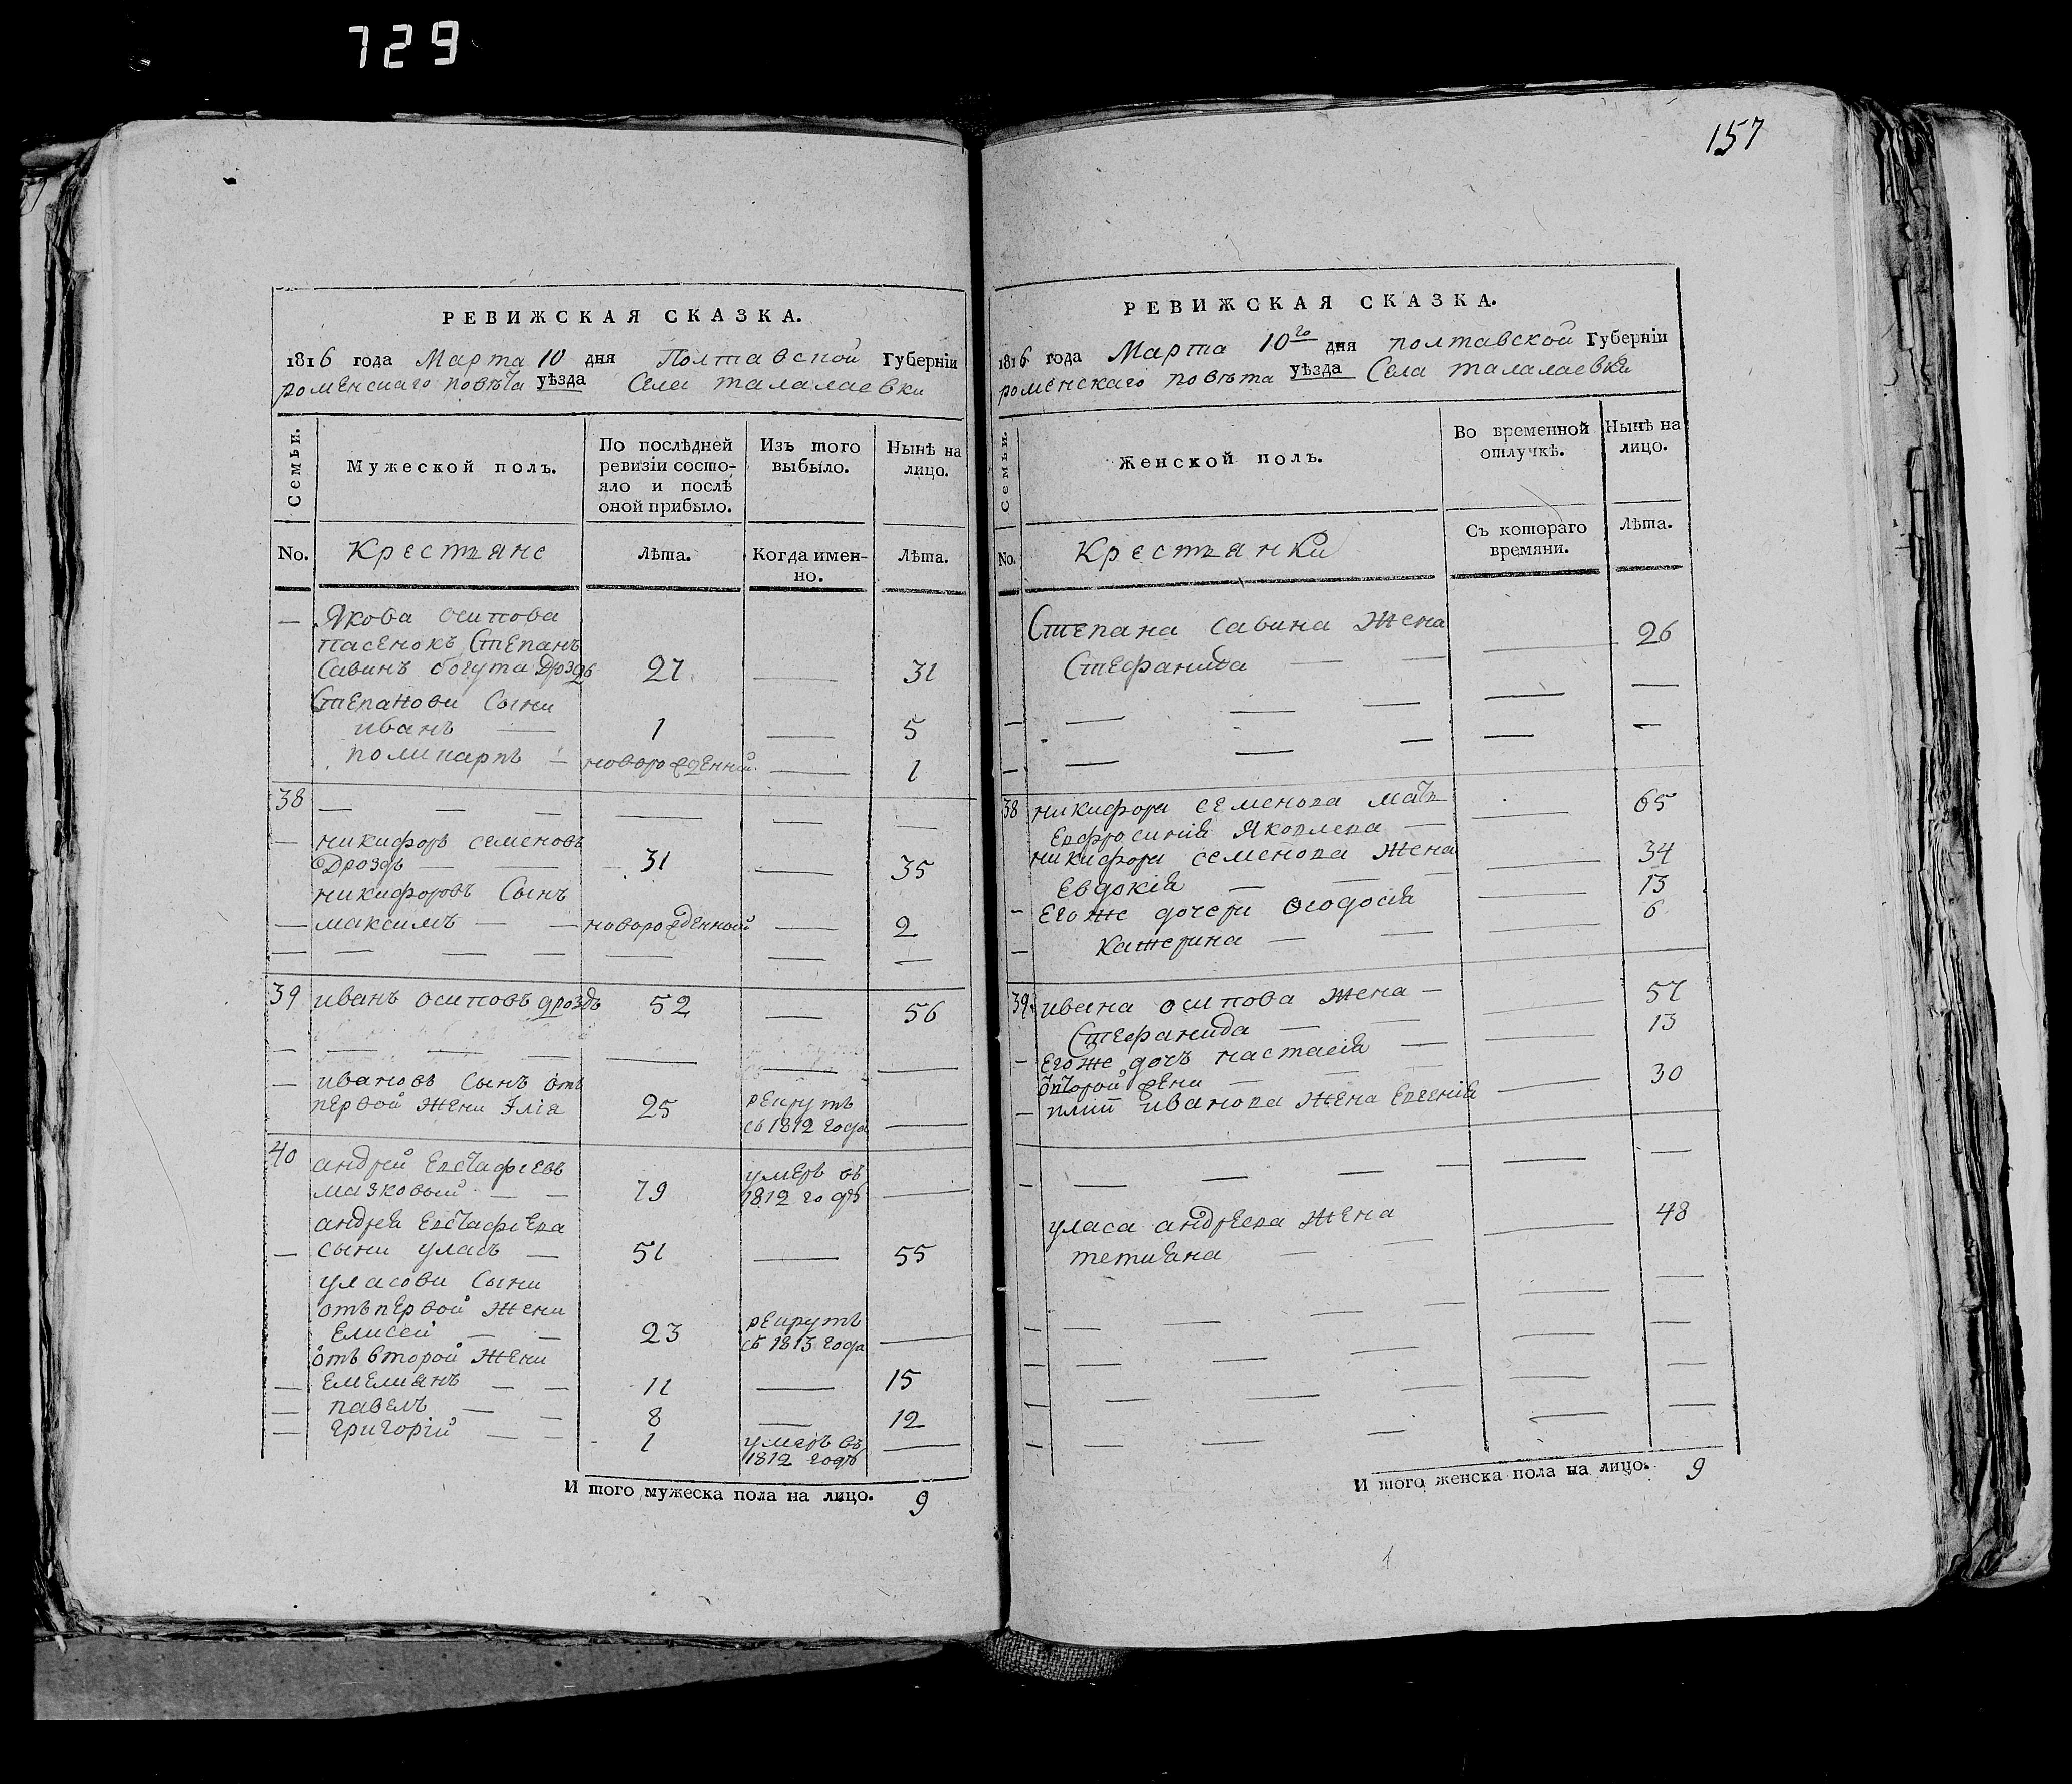 729
157
РЕВИЖСКАЯ СКАЗКА.
1816 года Марта 10 дня Полтавской Губерніи
роменскаго повѣта уѣзда Села талалаевки
Семьи.
Мужеской полъ.
По послѣдней ревизіи состо-
яло и послѣ
оной прибыло.
Изъ того
выбыло.
Нынѣ на
лицо.
No. Крестяне Лѣта. Когда имен-
но. Лѣта.
— Якова осипова
пасенокъ Степанъ
Савинъ богута Дроздъ 27 — 31
Степанови Сыни
иванъ — 1 — 5
поликарпъ — новорожденній — 1
38 — — — — — —
— никифоръ семеновъ
Дроздъ — — 31 — 35
никифоровъ Сынъ
— максимъ — — новорожденной — 2
— — — — — — —
39 иванъ осиповъ дроздъ 52 — 56
— — — — — — —
— ивановъ Сынъ отъ
первой жени Илія 25 рекрутъ
съ 1812 года —
40 андрей Евстафіевъ
мазковый — — 79 умеръ въ
1812 годѣ —
андрея Евстафіева
— сыни уласъ — 51 — 55
уласови Сыни
отъ первой жени
Елисей — — 23 рекрутъ
съ 1813 года —
отъ второй жени
— Емелианъ — — 11 — 15
— павелъ — — 8 — 12
— григорій — — 1 умеръ въ
1812 годѣ —
И того мужеска пола на лицо. 9
РЕВИЖСКАЯ СКАЗКА.
1816 года Марта 10го дня полтавской Губерніи
роменскаго повѣта уѣзда Села талалаевки
Семьи.
Женской полъ.
Во временной
отлучкѣ.
Нынѣ на
лицо.
No. Крестянки Съ котораго
времяни. Лѣта.
Степана савина Жена
Стефанида — — — 26
— — — — — —
— — — — — —
38 никифора семенова мать
Евфросинія Яковлева — — 65
никифора семенова жена
Евдокія — — — — 34
— Егоже дочери Ѳеодосія — 13
— Катерина — — — 6
39 ивана осипова жена —
Стефанида — — — 57
— Егоже дочъ настасія — — 13
второй жени — — —
— иванова жена Евгенія — 30
— — — — — — —
уласа андреева жена
тетияна — — — 48
— — — — — —
— — — — — —
— — — — — —
— — — — — —
И того женска пола на лицо. 9